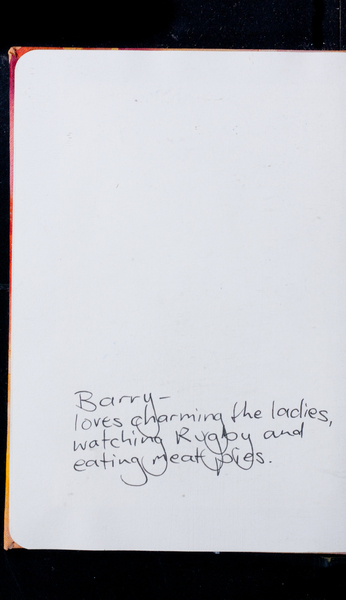 Barry-
loves charming the ladies,
watching Rugby and
eating meat pies.